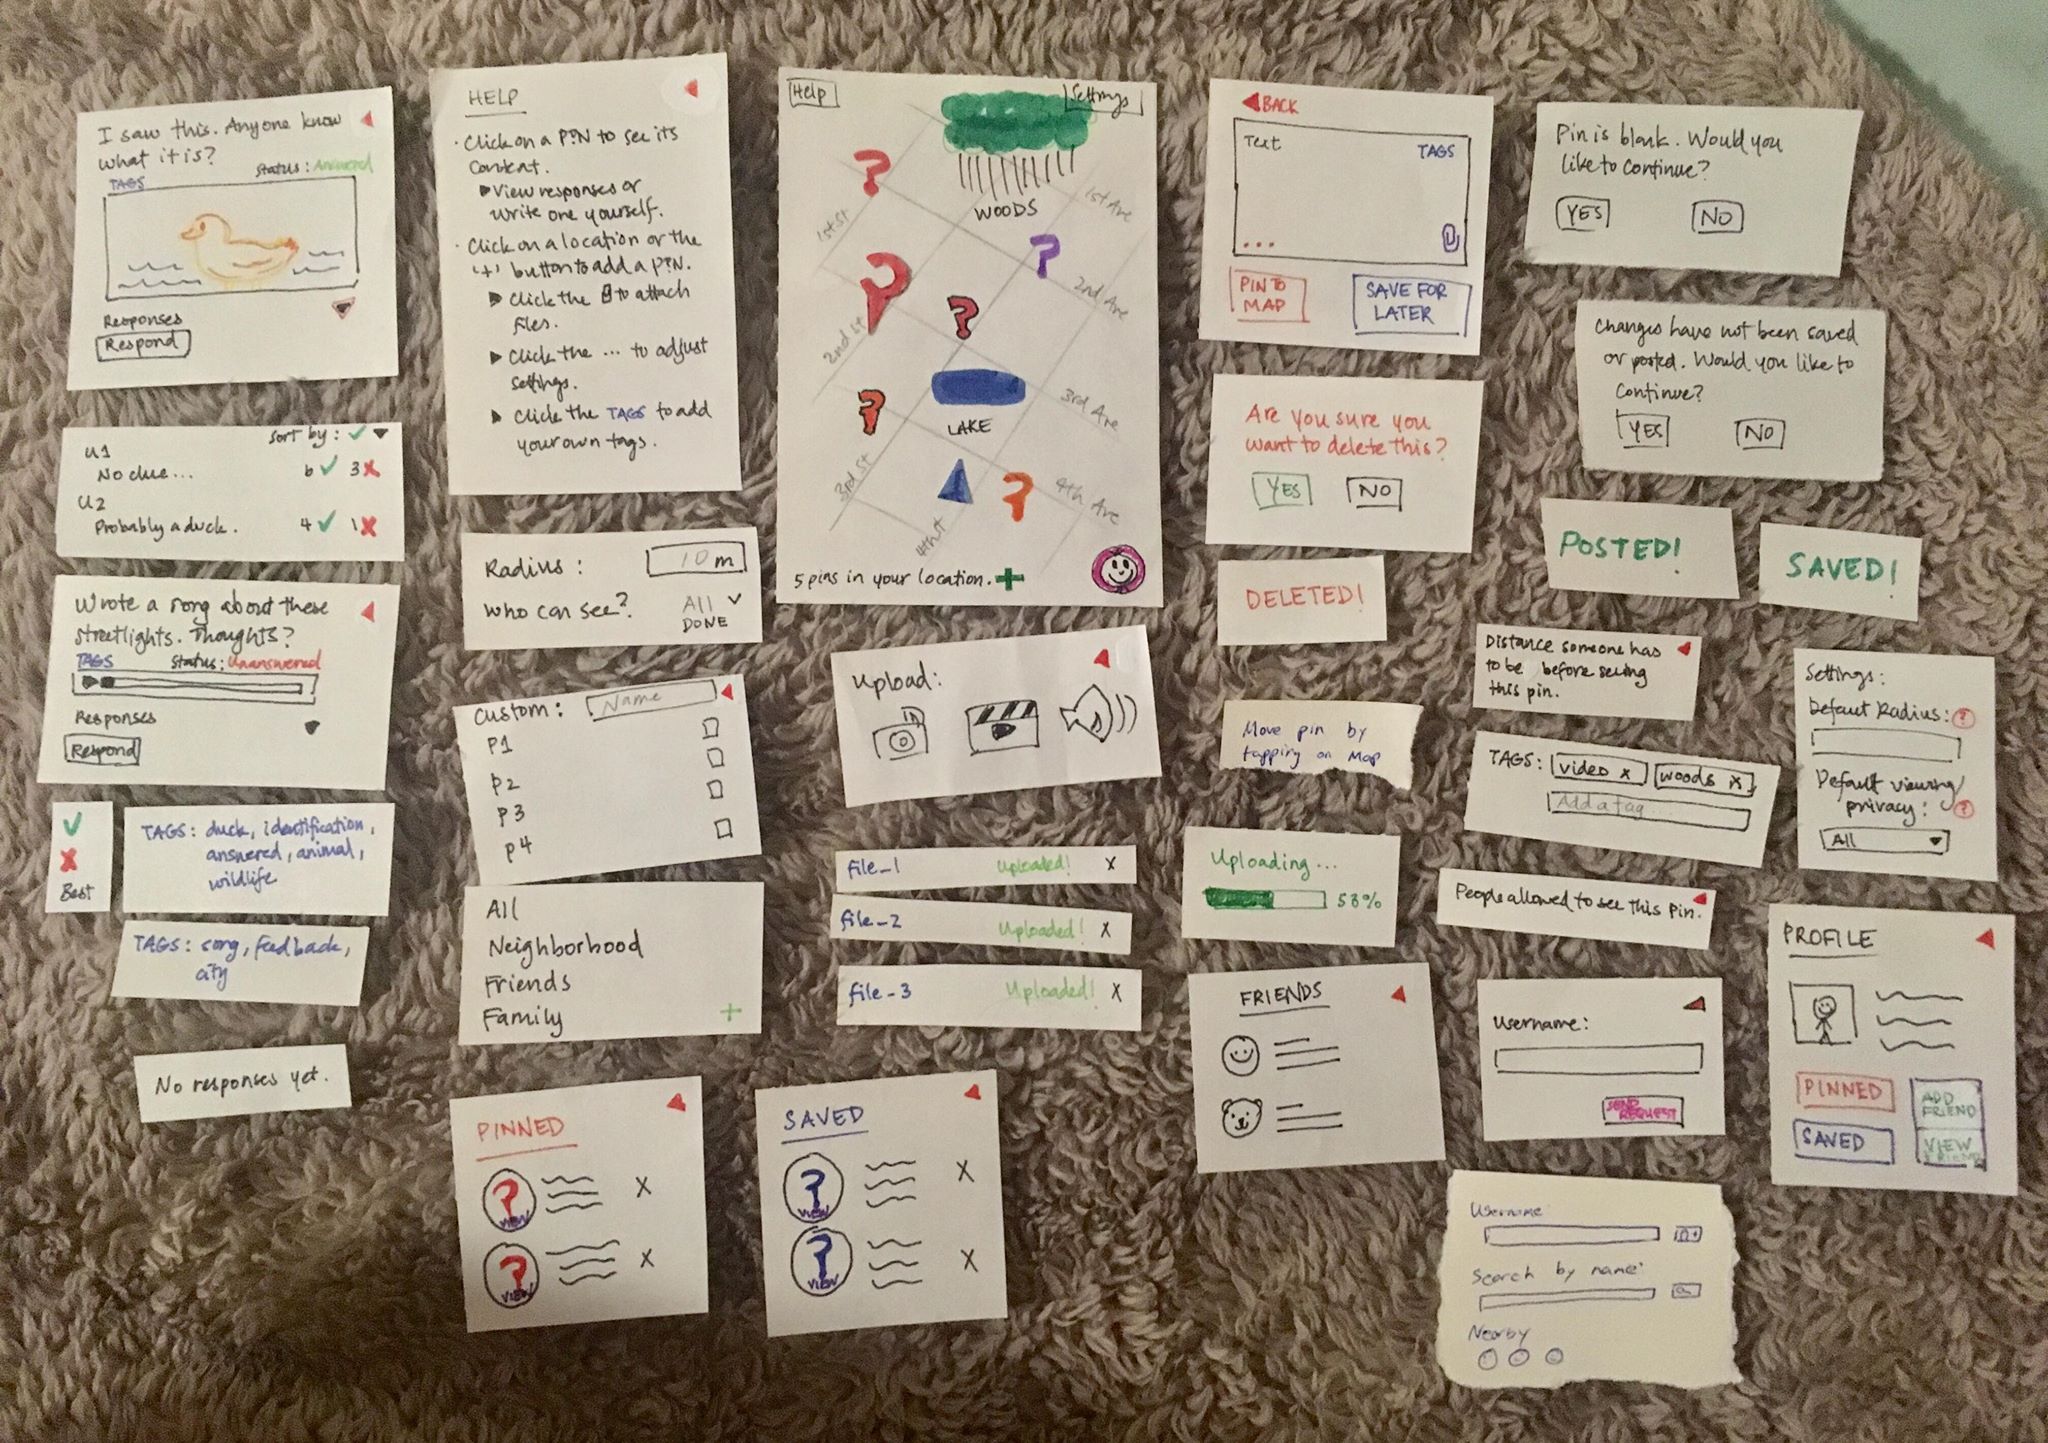 I saw this. Anyone know
what it is?
Status: Answered
TAGS
Responses
Respond
U1
Sort by: ✓
No clue...
6 ✓ 3 ✗
U2
Probably a duck.
4 ✓ 1 ✗
Wrote a song about these
streetlights. Thoughts?
TAGS
Status: Unanswered
Responses
Respond
✓
✗
Best
TAGS: duck, identification,
answered, animal,
wildlife
TAGS: song, feedback,
city
No responses yet.
HELP
· Click on a P?N to see its
Content.
▶ View responses or
write one yourself.
· Click on a location or the
'+' button to add a P?N.
▶ Click the to attach
files.
▶ Click the ... to adjust
settings.
▶ Click the TAGS to add
your own tags.
Radius: 10 m
Who can see? All ✓
DONE
Custom: Name
P1
P2
P3
P4
All
Neighborhood
Friends
Family +
PINNED
? VIEW X
? VIEW X
SAVED
? VIEW X
? VIEW X
Help
Settings
?
WOODS
1st St
1st Ave
?
?
2nd Ave
?
2nd St
?
LAKE
3rd Ave
3rd St
?
4th Ave
5 pins in your location. +
Upload:
file_1 Uploaded! X
file_2 Uploaded! X
file_3 Uploaded! X
BACK
Text TAGS
...
PIN TO
MAP
SAVE FOR
LATER
Are you sure you
want to delete this?
YES NO
DELETED!
Move pin by
tapping on map
Uploading...
53%
FRIENDS
Pin is blank. Would you
like to continue?
YES NO
Changes have not been saved
or posted. Would you like to
Continue?
YES NO
POSTED!
SAVED!
Distance someone has
to be before seeing
this pin.
TAGS: video x woods x
Add a tag...
People allowed to see this pin.
Username:
SEND
REQUEST
Username
Search by name:
Nearby
Settings:
Default Radius: ?
Default viewing
privacy: ?
All
PROFILE
PINNED
SAVED
ADD
FRIEND
VIEW